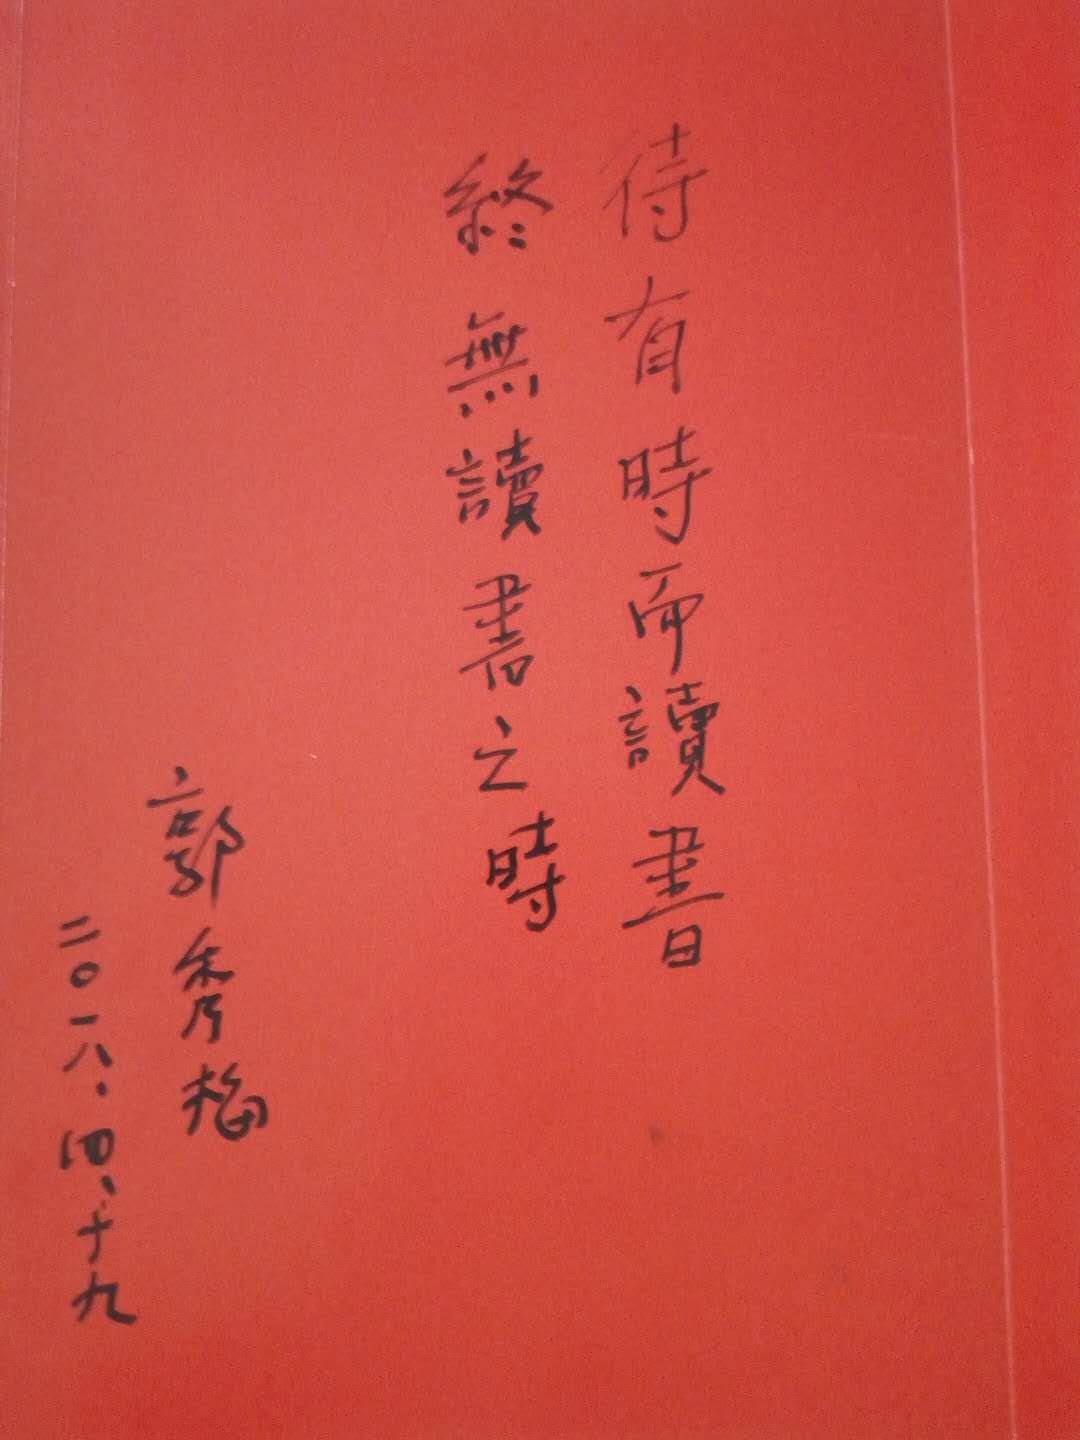 待有時而讀書
終無讀書之時
郭秀梅
二〇一八、四、十九